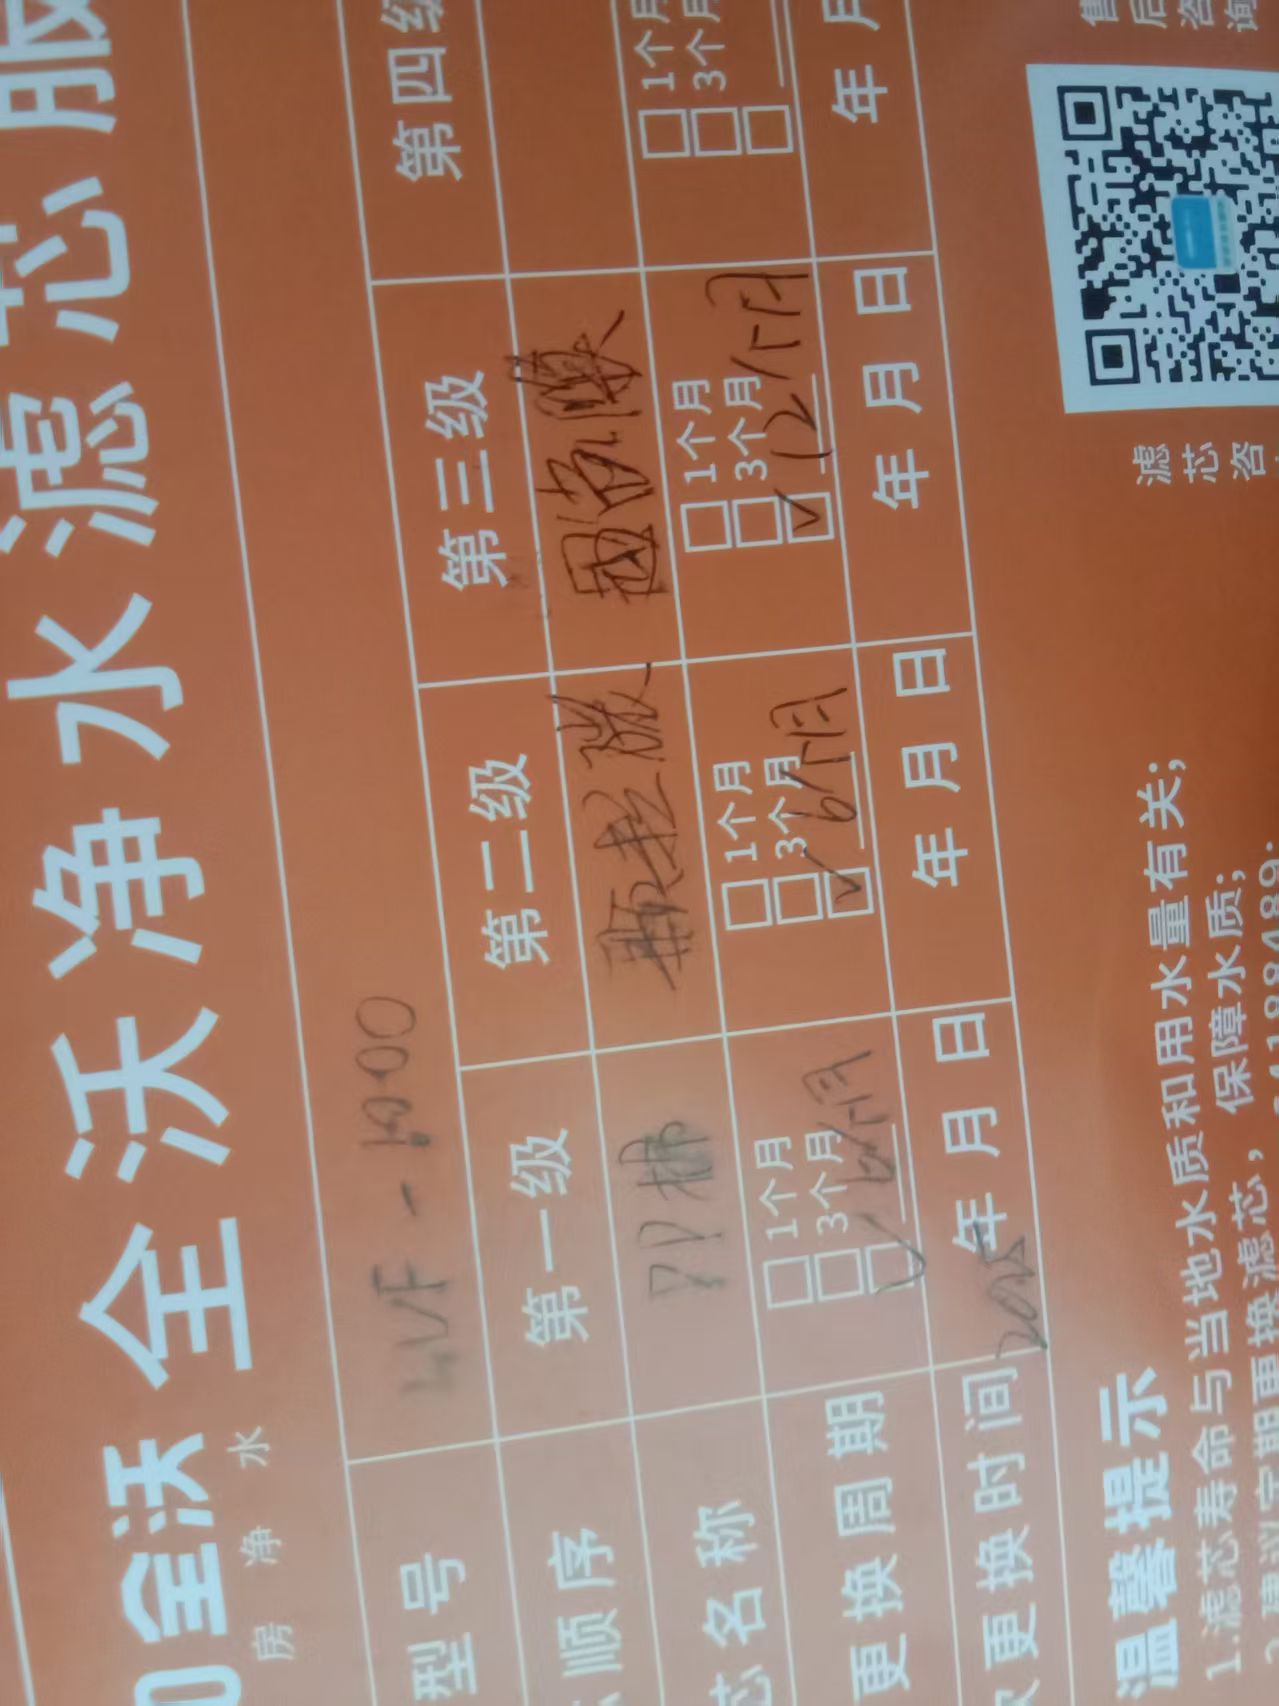 全沃净水滤芯服
全沃
房 净 水
型号 WF-1000
顺序 第一级 第二级 第三级 第四级
芯名称 PP棉
更换周期 1个月 1个月 1个月 1个月
3个月 3个月 3个月 3个月
✓ 6个月 ✓ 6个月 ✓ 12个月
更换时间 年 月 日 年 月 日 年 月 日 年 月
温馨提示
1.滤芯寿命与当地水质和用水量有关；
更换滤芯，保障水质；
滤芯咨
售后咨询